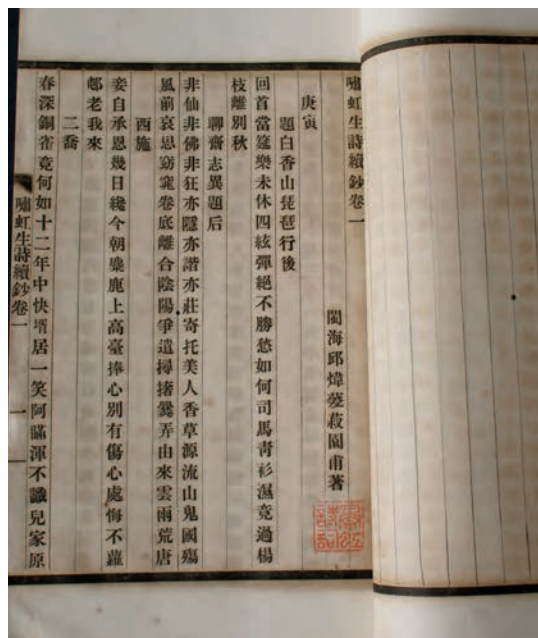 嘯虹生詩續鈔卷一
閩海邱煒萲菽園甫著
庚寅
題白香山琵琶行後
回首當筵樂未休四絃彈絕不勝愁如何司馬青衫濕竟過楊
枝離別秋
聊齋志異題后
非仙非佛非狂亦隱亦諧亦莊寄托美人香草源流山鬼國殤
風前哀思窈窕卷底離合陰陽爭遣撏撦弄由來雲雨荒唐
西施
妾自承恩幾日纔今朝麋鹿上高臺捧心別有傷心處悔不蘿
邨老我來
二喬
春深銅雀竟何如十二年中快壻居一笑阿瞞渾不識兒家原
嘯虹生詩續鈔卷一
一